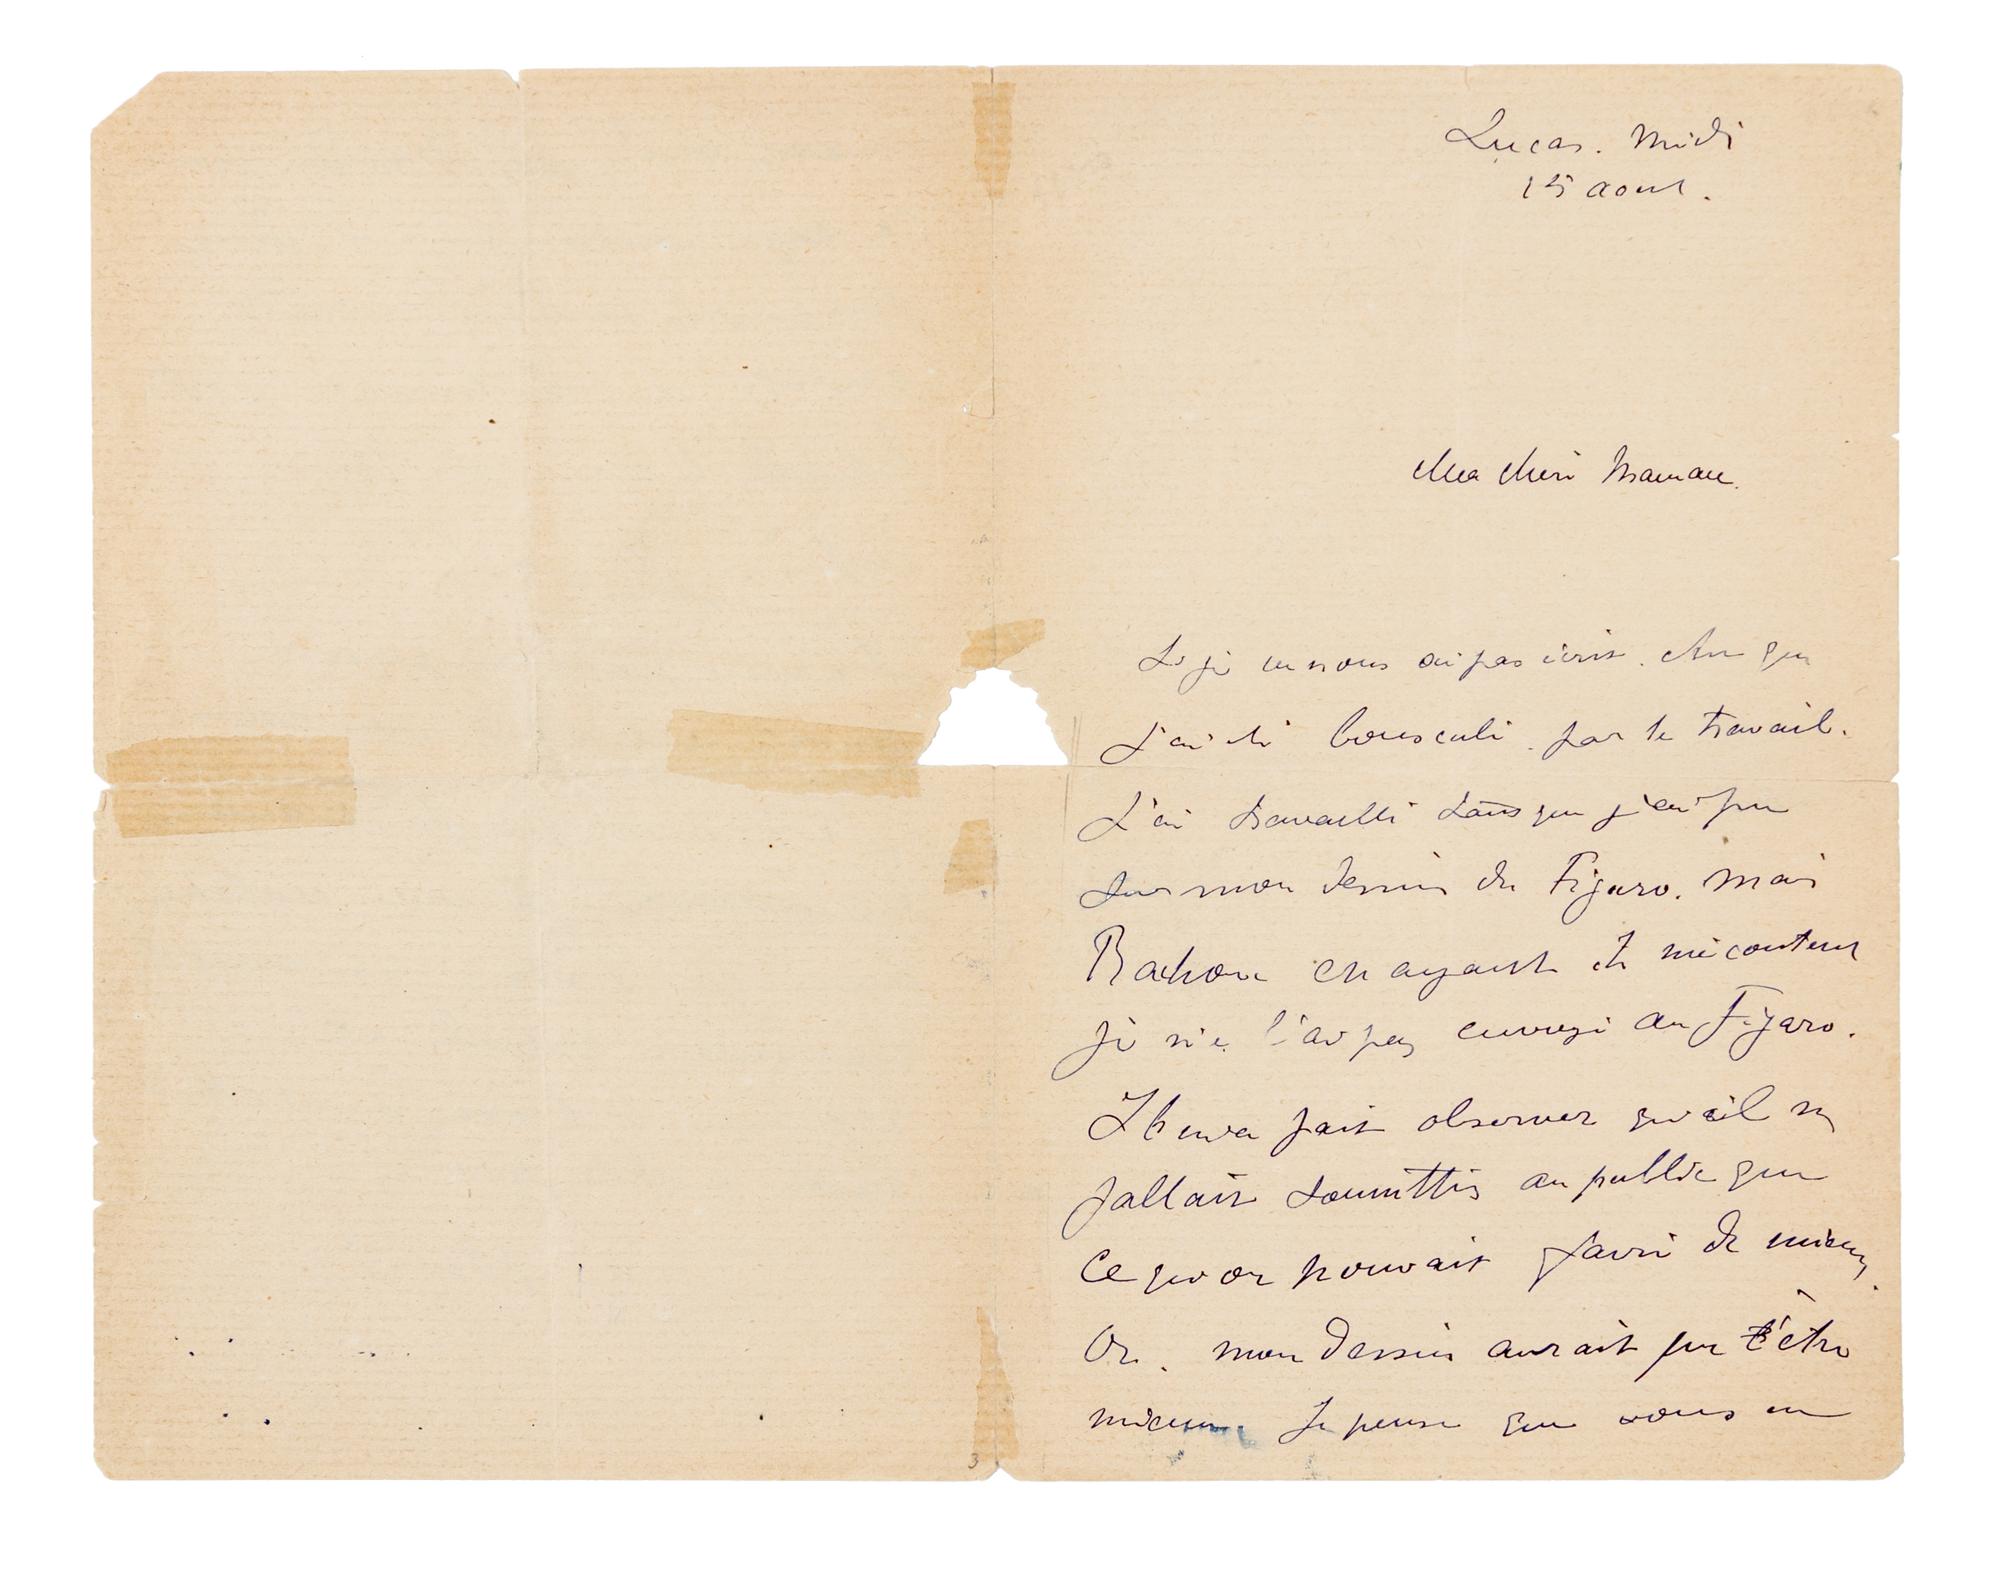 Lucas. Midi
15 aout.
Ma chère Maman.
Si je ne vous ai pas écrit. c'est que
J'ai été bousculé par le travail.
J'ai travaillé tant que j'ai pu
sur mon dessin du Figaro. mais
Rachou en ayant été mécontent
je ne l'ai pas envoyé au Figaro.
Il m'a fait observer qu'il ne
fallait soumettre au public que
ce qu'on pouvait faire de mieux.
Or. mon dessin aurait pu être
mieux Je pense que vous en
3